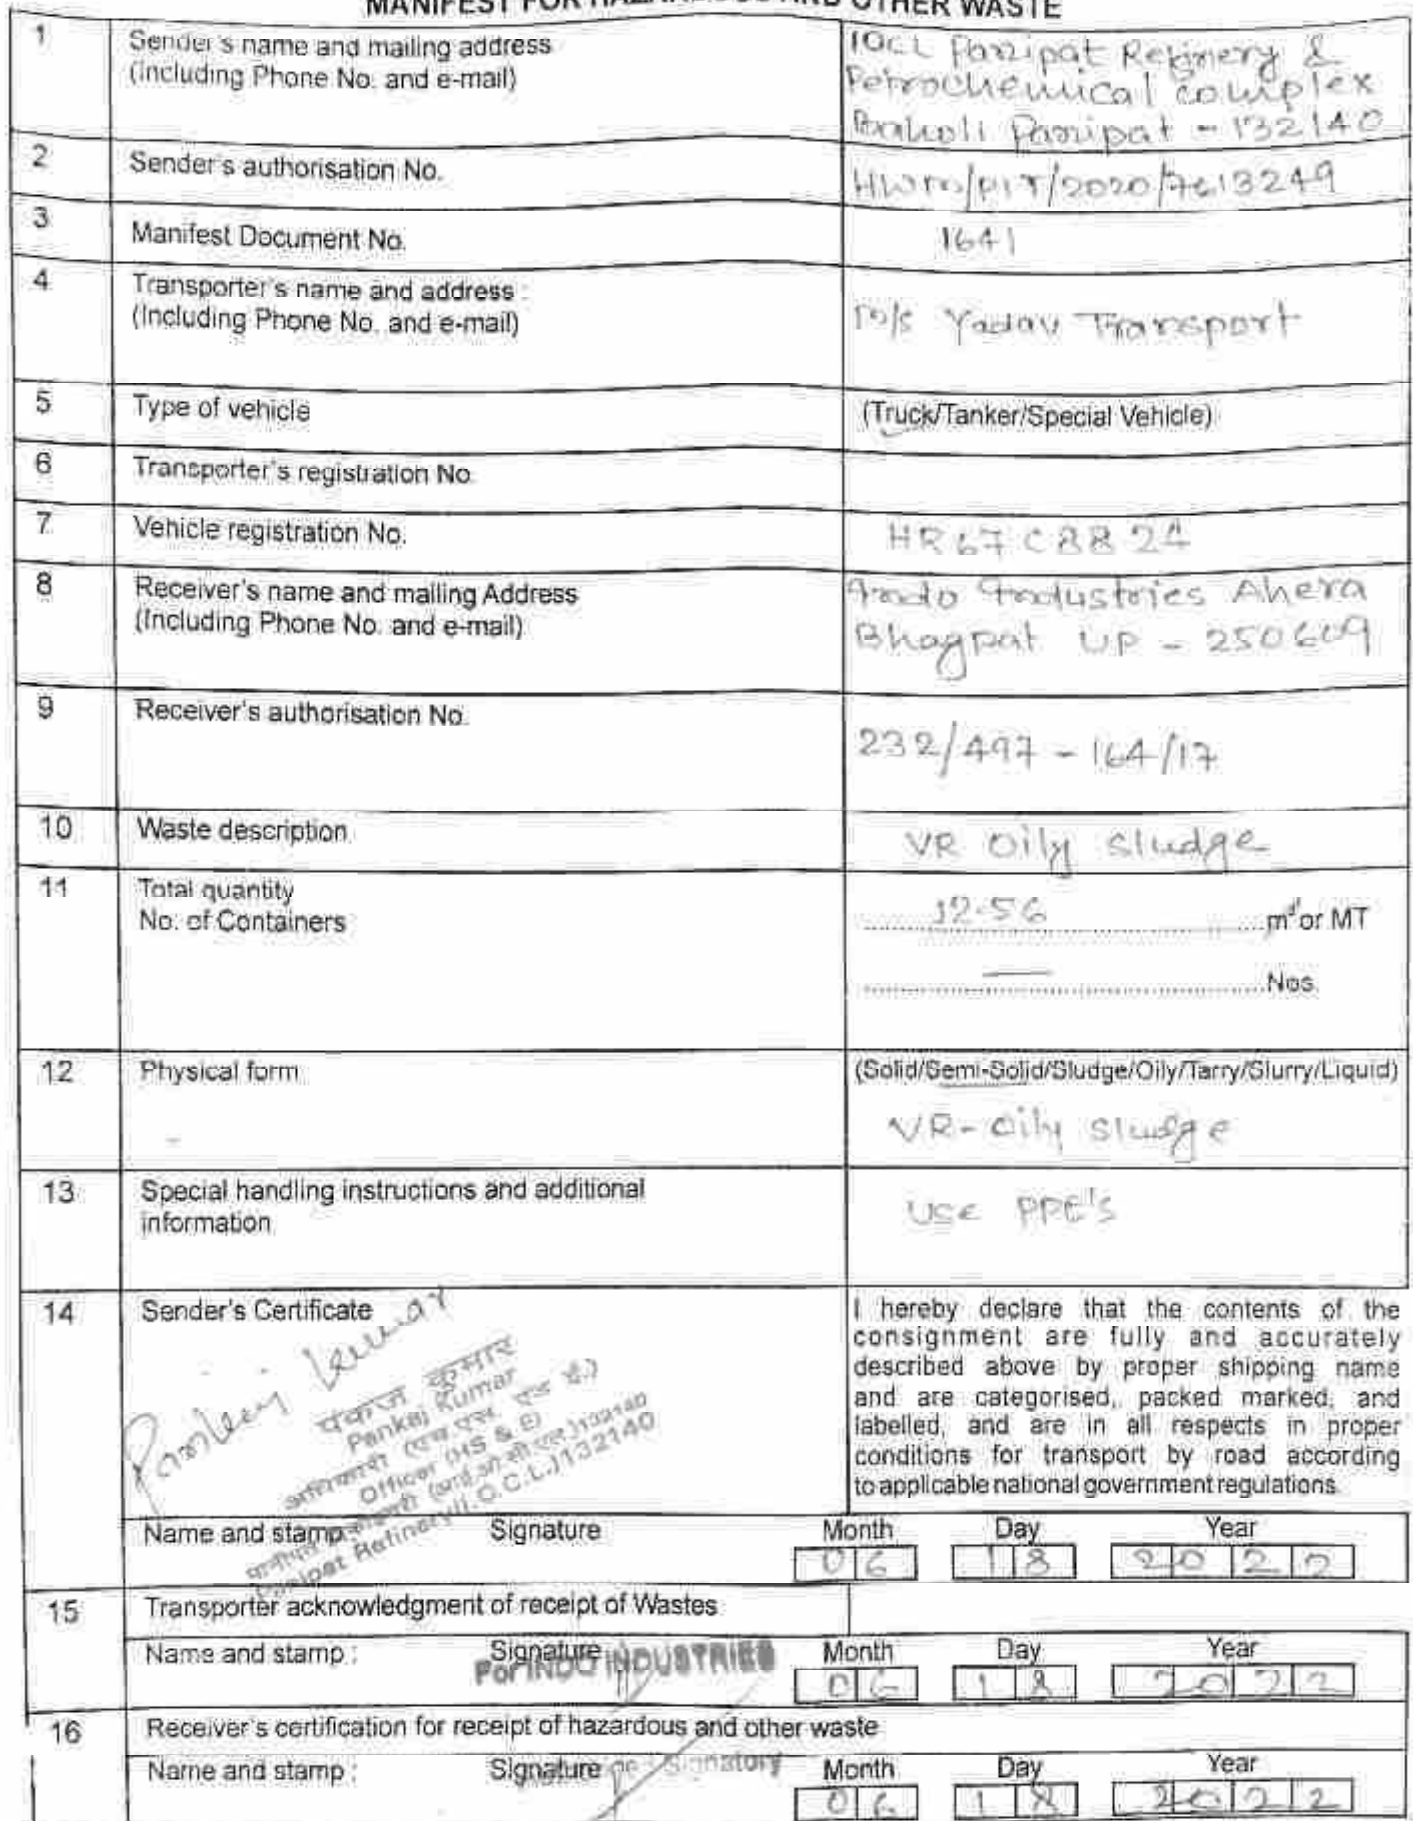 MANIFEST FOR HAZARDOUS AND OTHER WASTE
1 Sender's name and mailing address
(Including Phone No. and e-mail)
IOCL Panipat Refinery &
Petrochemical complex
Baholi Panipat - 132140
2 Sender's authorisation No. HWM/PIT/2020/7613249
3 Manifest Document No. 1641
4 Transporter's name and address :
(Including Phone No. and e-mail)
M/s Yadav Transport
5 Type of vehicle (Truck/Tanker/Special Vehicle)
6 Transporter's registration No.
7 Vehicle registration No. HR67C8824
8 Receiver's name and mailing Address
(Including Phone No. and e-mail)
Indo Industries Ahera
Bhagpat UP - 250609
9 Receiver's authorisation No.
232/497 - 164/17
10 Waste description VR Oily sludge
11 Total quantity
No. of Containers
12.56 m³ or MT
— Nos.
12 Physical form (Solid/Semi-Solid/Sludge/Oily/Tarry/Slurry/Liquid)
VR-Oily sludge
13 Special handling instructions and additional
information
USE PPE's
14 Sender's Certificate
I hereby declare that the contents of the
consignment are fully and accurately
described above by proper shipping name
and are categorised, packed marked, and
labelled, and are in all respects in proper
conditions for transport by road according
to applicable national government regulations.
Pankaj Kumar
पंकज कुमार
Pankaj Kumar
अधिकारी (एच.एस. एंड ई.)
Officer (HS & E)
(आई.ओ.सी.एल.) 132140
Panipat Refinery (I.O.C.L.) 132140
Name and stamp: Signature Month Day Year
06 18 2022
15 Transporter acknowledgment of receipt of Wastes
For INDO INDUSTRIES
Name and stamp : Signature Month Day Year
06 18 2022
16 Receiver's certification for receipt of hazardous and other waste
Signatory
Name and stamp : Signature Month Day Year
06 18 2022